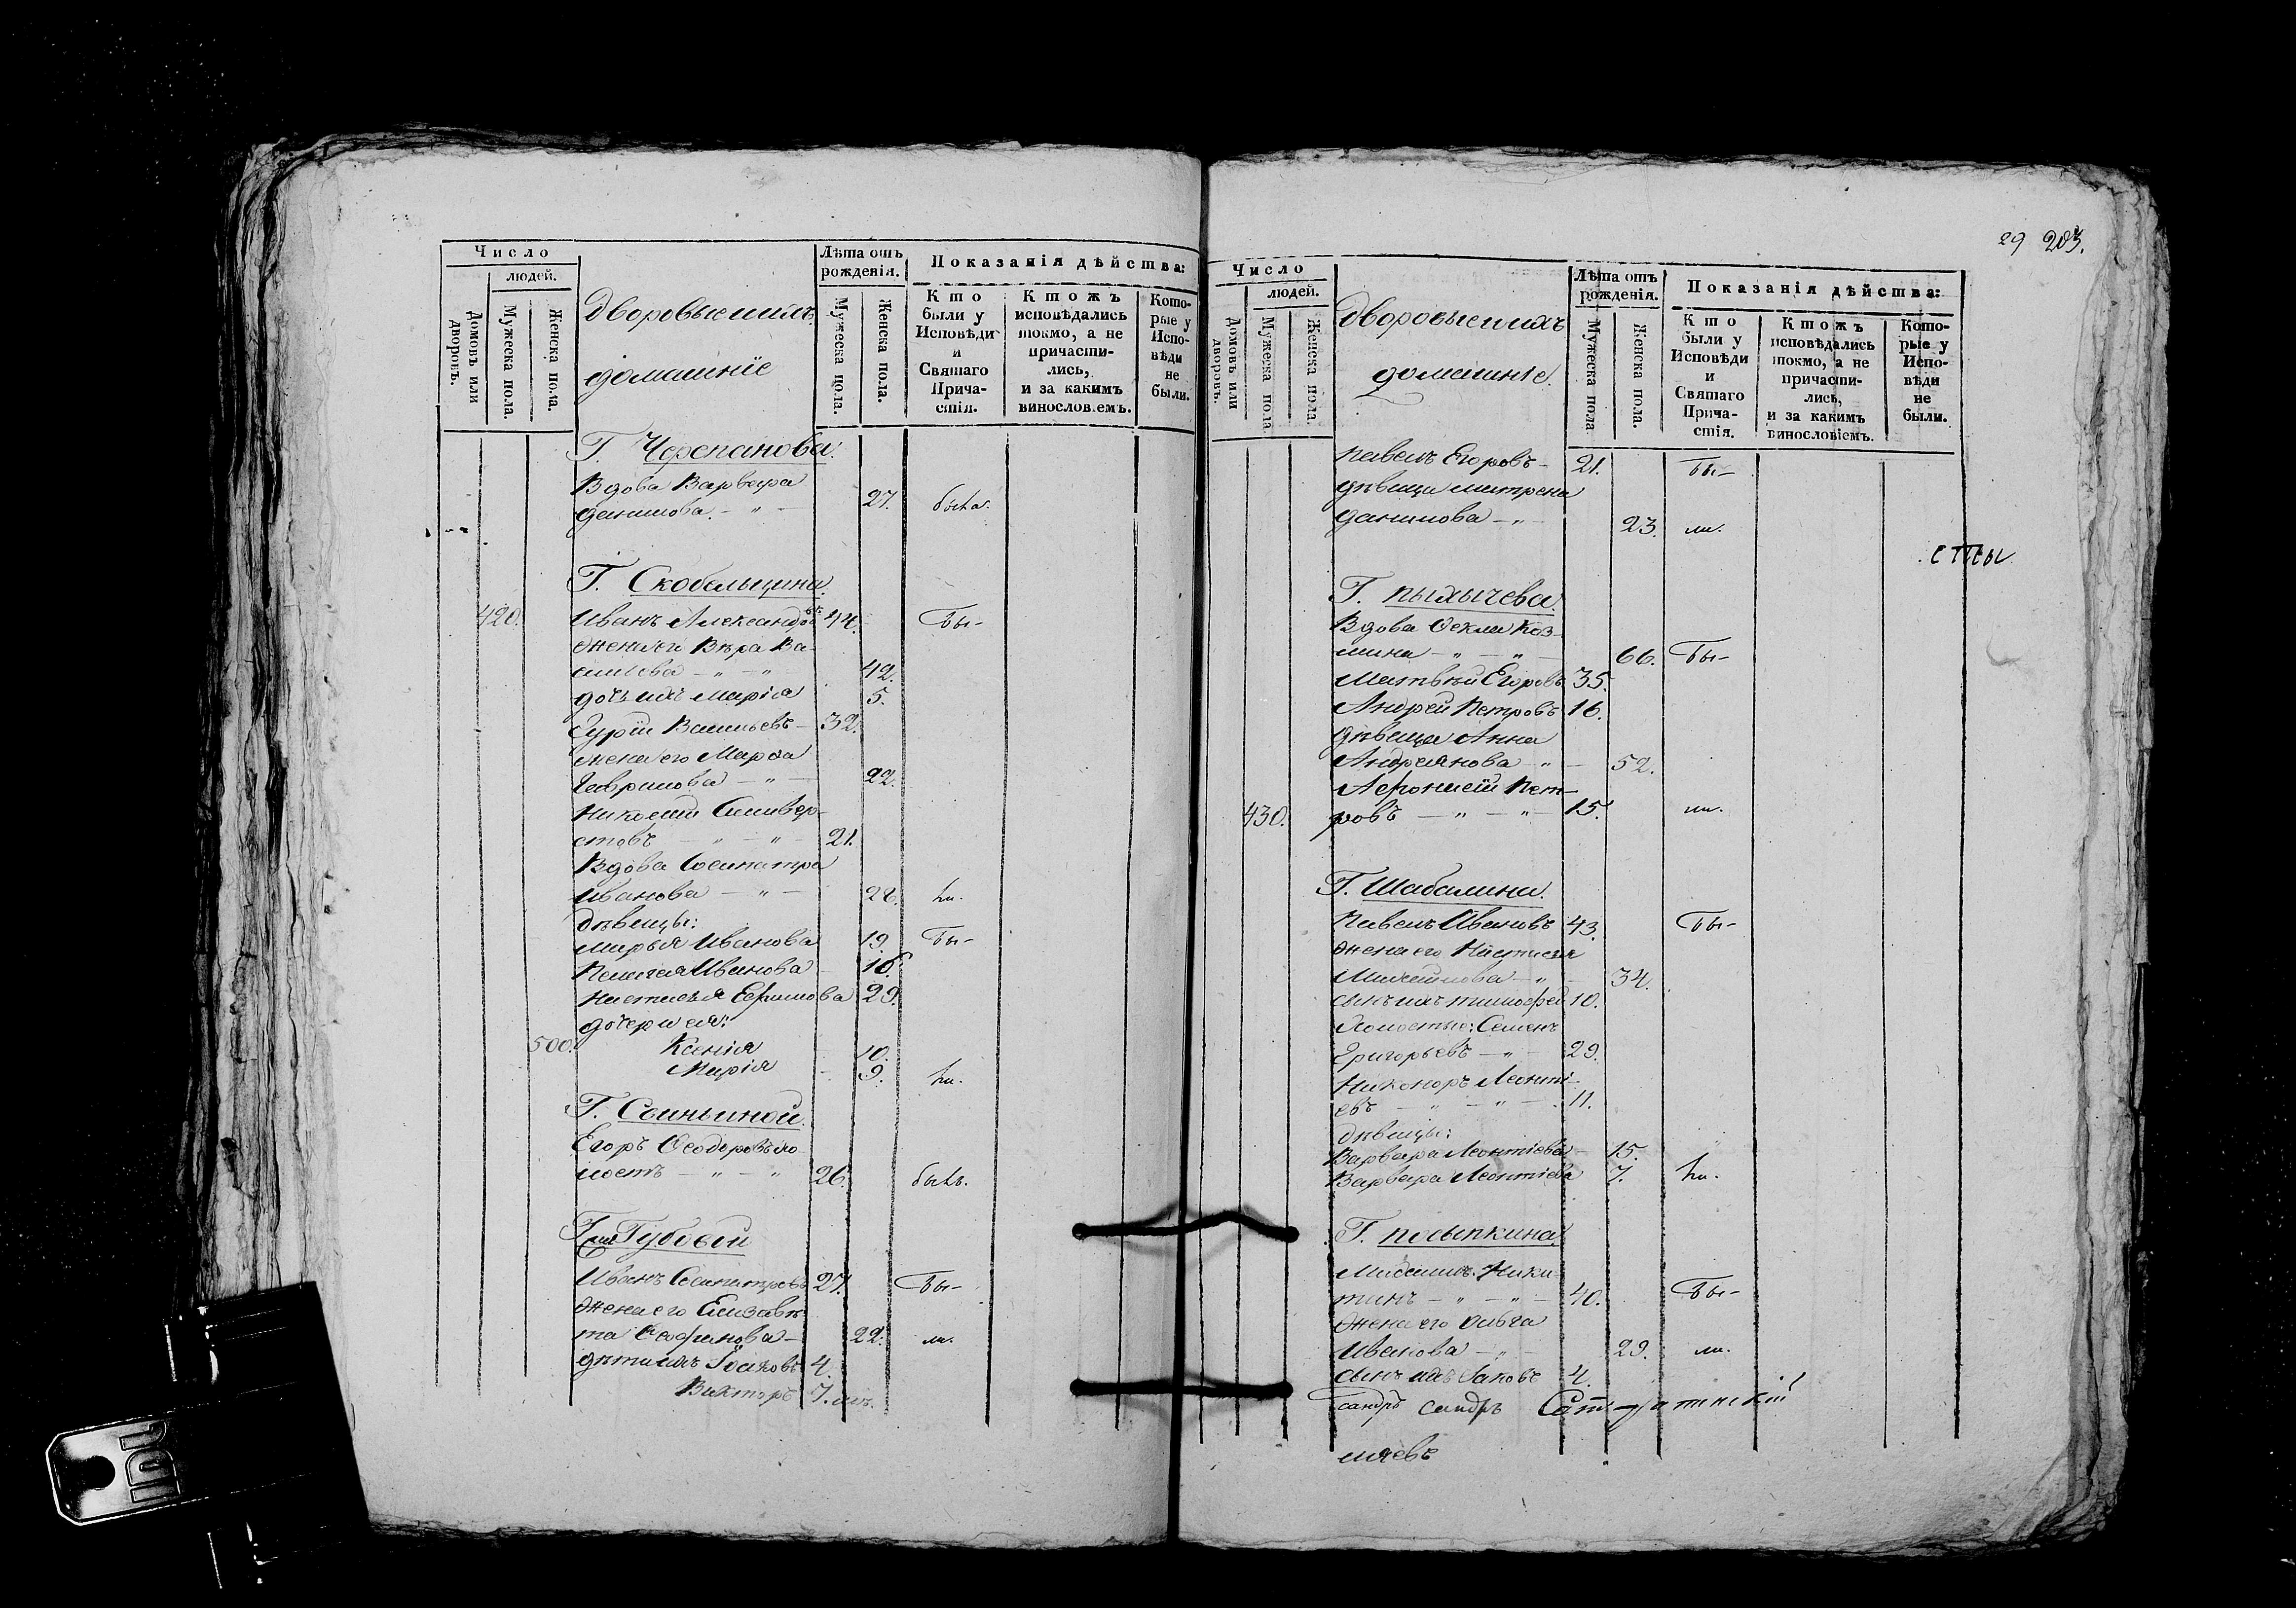 Число
людей.
Домовъ или дворовъ.
Мужеска пола.
Женска пола.
Дворовые ихъ
домашніе
Лѣта отъ рожденія.
Мужеска пола.
Женска пола.
Показанія дѣйства:
Кто были у Исповѣди и Святаго Причастія.
Ктожъ исповѣдались токмо, а не причастились, и за какимъ винословіемъ.
Которые у Исповѣди не были.
Г. Черепанова.
Вдова Варвара
Данилова - " - 27. была.
Г. Скобельцына.
420. Иванъ Александровъ 44. Бы-
жена его Вѣра Ва-
сильева - " - " 42.
дочь ихъ Марія 5.
Гурій Васильевъ - 32.
жена его Марѳа
Гаврилова - " - 22.
Николай Селивер-
стовъ - " - " - 21.
Вдова
Иванова - " - 28. ли.
Дѣвицы:
Марья Иванова 19. Бы-
Пелагея Иванова - 18.
Настасья Ефимова 29.
дочери ея:
500. Ксенія 10.
Марія - 9. ли.
Г. Свиньиной.
Егоръ Ѳеодоровъ хо-
лостъ - " - " 26. былъ.
Губовой
Иванъ 27. Бы-
жена его Елизаве-
та - 22. ли.
дѣти ихъ Іаковъ 4.
Викторъ 7.
29 203.
Число
людей.
Домовъ или дворовъ.
Мужеска пола
Женска пола.
Дворовые ихъ
домашніе.
Лѣта отъ рожденія.
Мужеска пола
Женска пола.
Показанія дѣйства:
Кто были у Исповѣди и Святаго Причастія.
Ктожъ исповѣдались токмо, а не причастились, и за какимъ винословіемъ.
Которые у Исповѣди не были.
Павелъ Егоровъ - 21. Бы-
дѣвица Матрена
Данилова - " - 23. ли.
Г. Пыхычева.
Вдова Ѳекла Коз-
мина - " - " - 66. Бы-
Матвѣй Егоровъ 35.
Андрей Петровъ 16.
Дѣвица Анна
Андреянова - " - 52.
Афонасій Пет-
430. ровъ - " - " - 15. ли.
Г. Шабалина.
Павелъ Ивановъ 43. Бы-
жена его Настасья
Михайлова - " - 34.
сынъ ихъ Тимофей 10.
Холостые: Семенъ
Григорьевъ - " - 29.
Никоноръ Леонті-
евъ - " - " - 11.
Дѣвицы:
Варвара Леонтіева - 15.
Варвара Леонтіева 7. ли.
Г. Посыпкина.
Максимъ Ники-
тинъ - " - " - 40. Бы-
жена его Ольга
Иванова - " - 29. ли.
сынъ ихъ Іаковъ 4.
сандръ сандръ